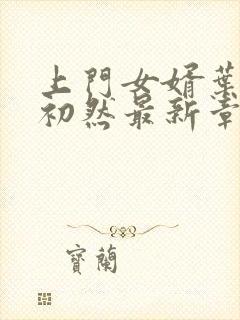 上門女婿葉
初然最新章
寶蘭